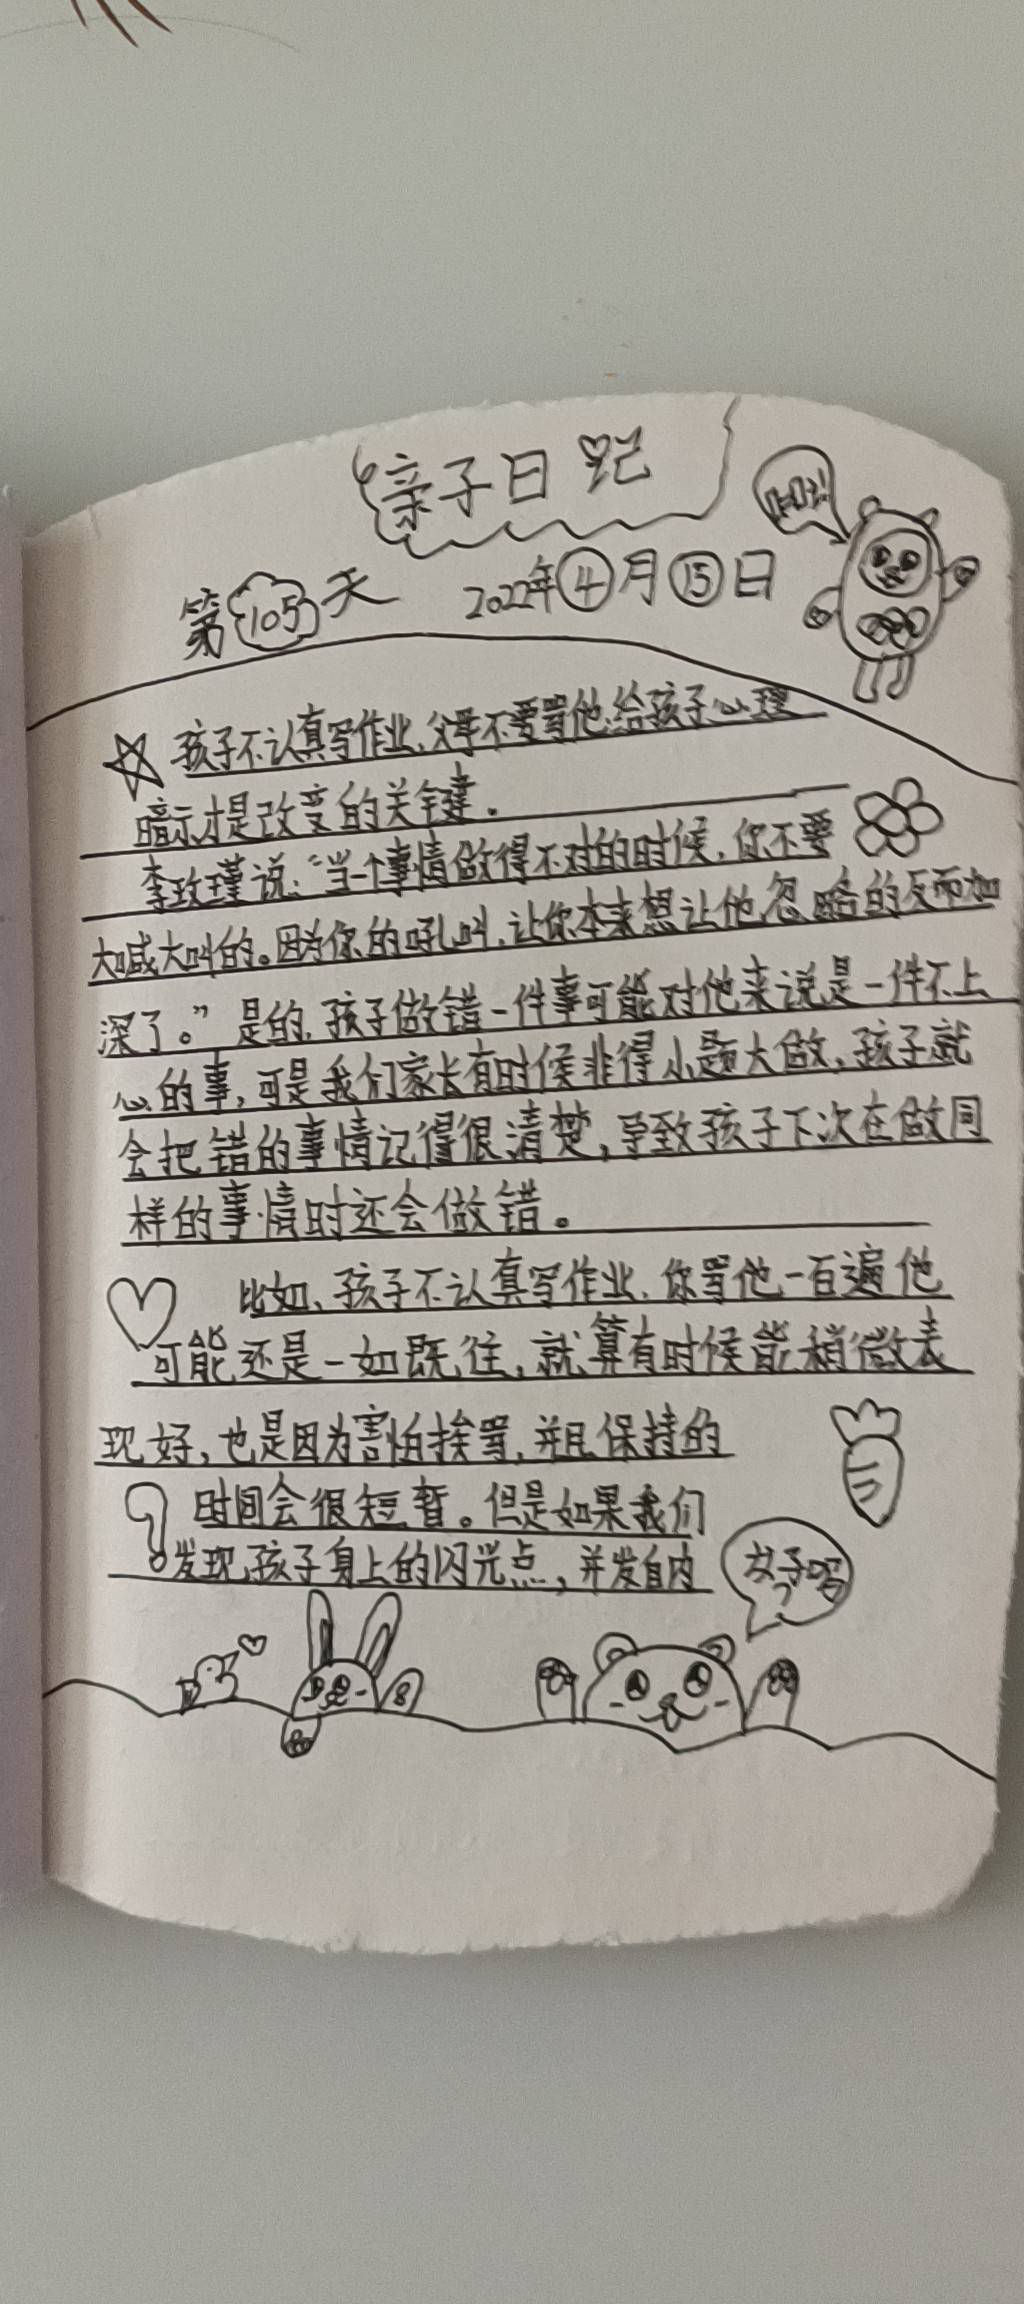 亲子日记
第105天 2022年4月15日
孩子不认真写作业,父母不要骂他,给孩子心理
暗示才是改变的关键。
李玫瑾说:“当一个事情做得不对的时候,你不要
大喊大叫的。因为你的吼叫,让你本来想让他忽略的反而加
深了。”是的,孩子做错一件事可能对他来说是一件不上
心的事,可是我们家长有时候非得小题大做,孩子就
会把错的事情记得很清楚,导致孩子下次在做同
样的事情时还会做错。
比如,孩子不认真写作业,你骂他一百遍他
可能还是一如既往,就算有时候能稍微表
现好,也是因为害怕挨骂,并且保持的
时间会很短暂。但是如果我们
发现孩子身上的闪光点,并发自内